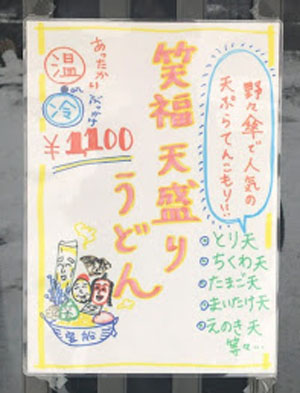 笑福 天盛り
うどん
あったかい
温
or
冷
ぶっかけ
¥1100
野々傘で人気の
天ぷらてんこもり!!
とり天
ちくわ天
たまご天
まいたけ天
えのき天
等々…